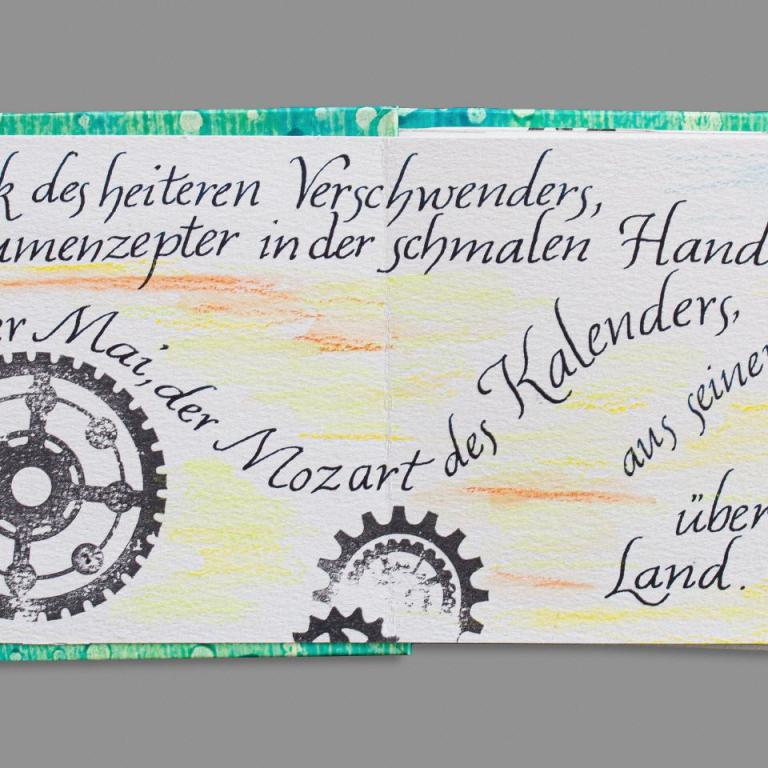 k des heiteren Verschwenders,
umenzepter in der schmalen Hand
er Mai, der Mozart des Kalenders,
aus seiner
über
Land.